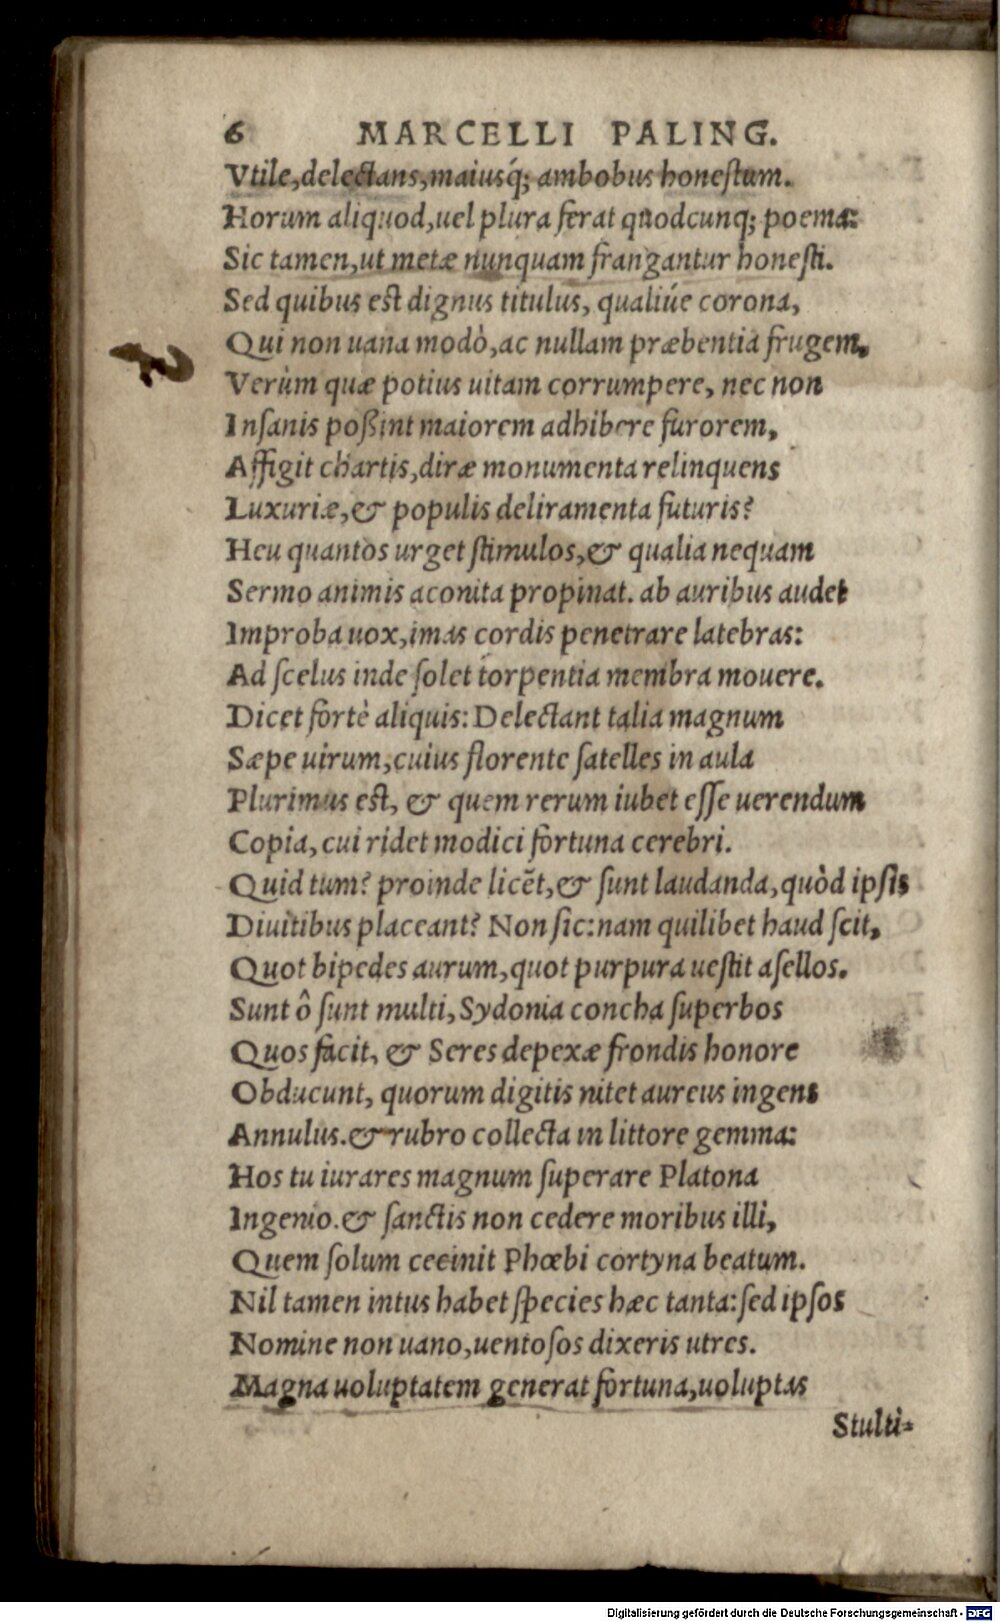 6 MARCELLI PALING.
Vtile,delectans,maiusq́; ambobus honeſtum.
Horum aliquod,uel plura ferat quodcunq; poema:
Sic tamen,ut metæ nunquam frangantur honeſti.
Sed quibus est dignus titulus, qualiúe corona,
Qui non uana modò,ac nullam præbentia frugem,
Verùm quæ potius uitam corrumpere, nec non
Inſanis poßint maiorem adhibere furorem,
Affigit chartis,diræ monumenta relinquens
Luxuriæ,& populis deliramenta futuris?
Heu quantos urget ſtimulos,& qualia nequam
Sermo animis aconita propinat. ab auribus audet
Improba uox,imas cordis penetrare latebras:
Ad ſcelus inde ſolet torpentia membra mouere.
Dicet fortè aliquis: Delectant talia magnum
Sæpe uirum,cuius florente ſatelles in aula
Plurimus est, & quem rerum iubet eſſe uerendum
Copia, cui ridet modici fortuna cerebri.
Quid tum? proinde licẽt,& ſunt laudanda,quòd ipſis
Diuitibus placeant? Non ſic:nam quilibet haud ſcit,
Quot bipedes aurum,quot purpura ueſtit aſellos.
Sunt ô ſunt multi, Sydonia concha ſuperbos
Quos facit, & Seres depexæ frondis honore
Obducunt, quorum digitis nitet aureus ingens
Annulus.& rubro collecta in littore gemma:
Hos tu iurares magnum ſuperare Platona
Ingenio.& ſanctis non cedere moribus illi,
Quem ſolum cecinit Phœbi cortyna beatum.
Nil tamen intus habet ſpecies hæc tanta:ſed ipſos
Nomine non uano,uentoſos dixeris utres.
Magna uoluptatem generat fortuna,uoluptas
Stulti-
Digitalisierung gefördert durch die Deutsche Forschungsgemeinschaft - DFG